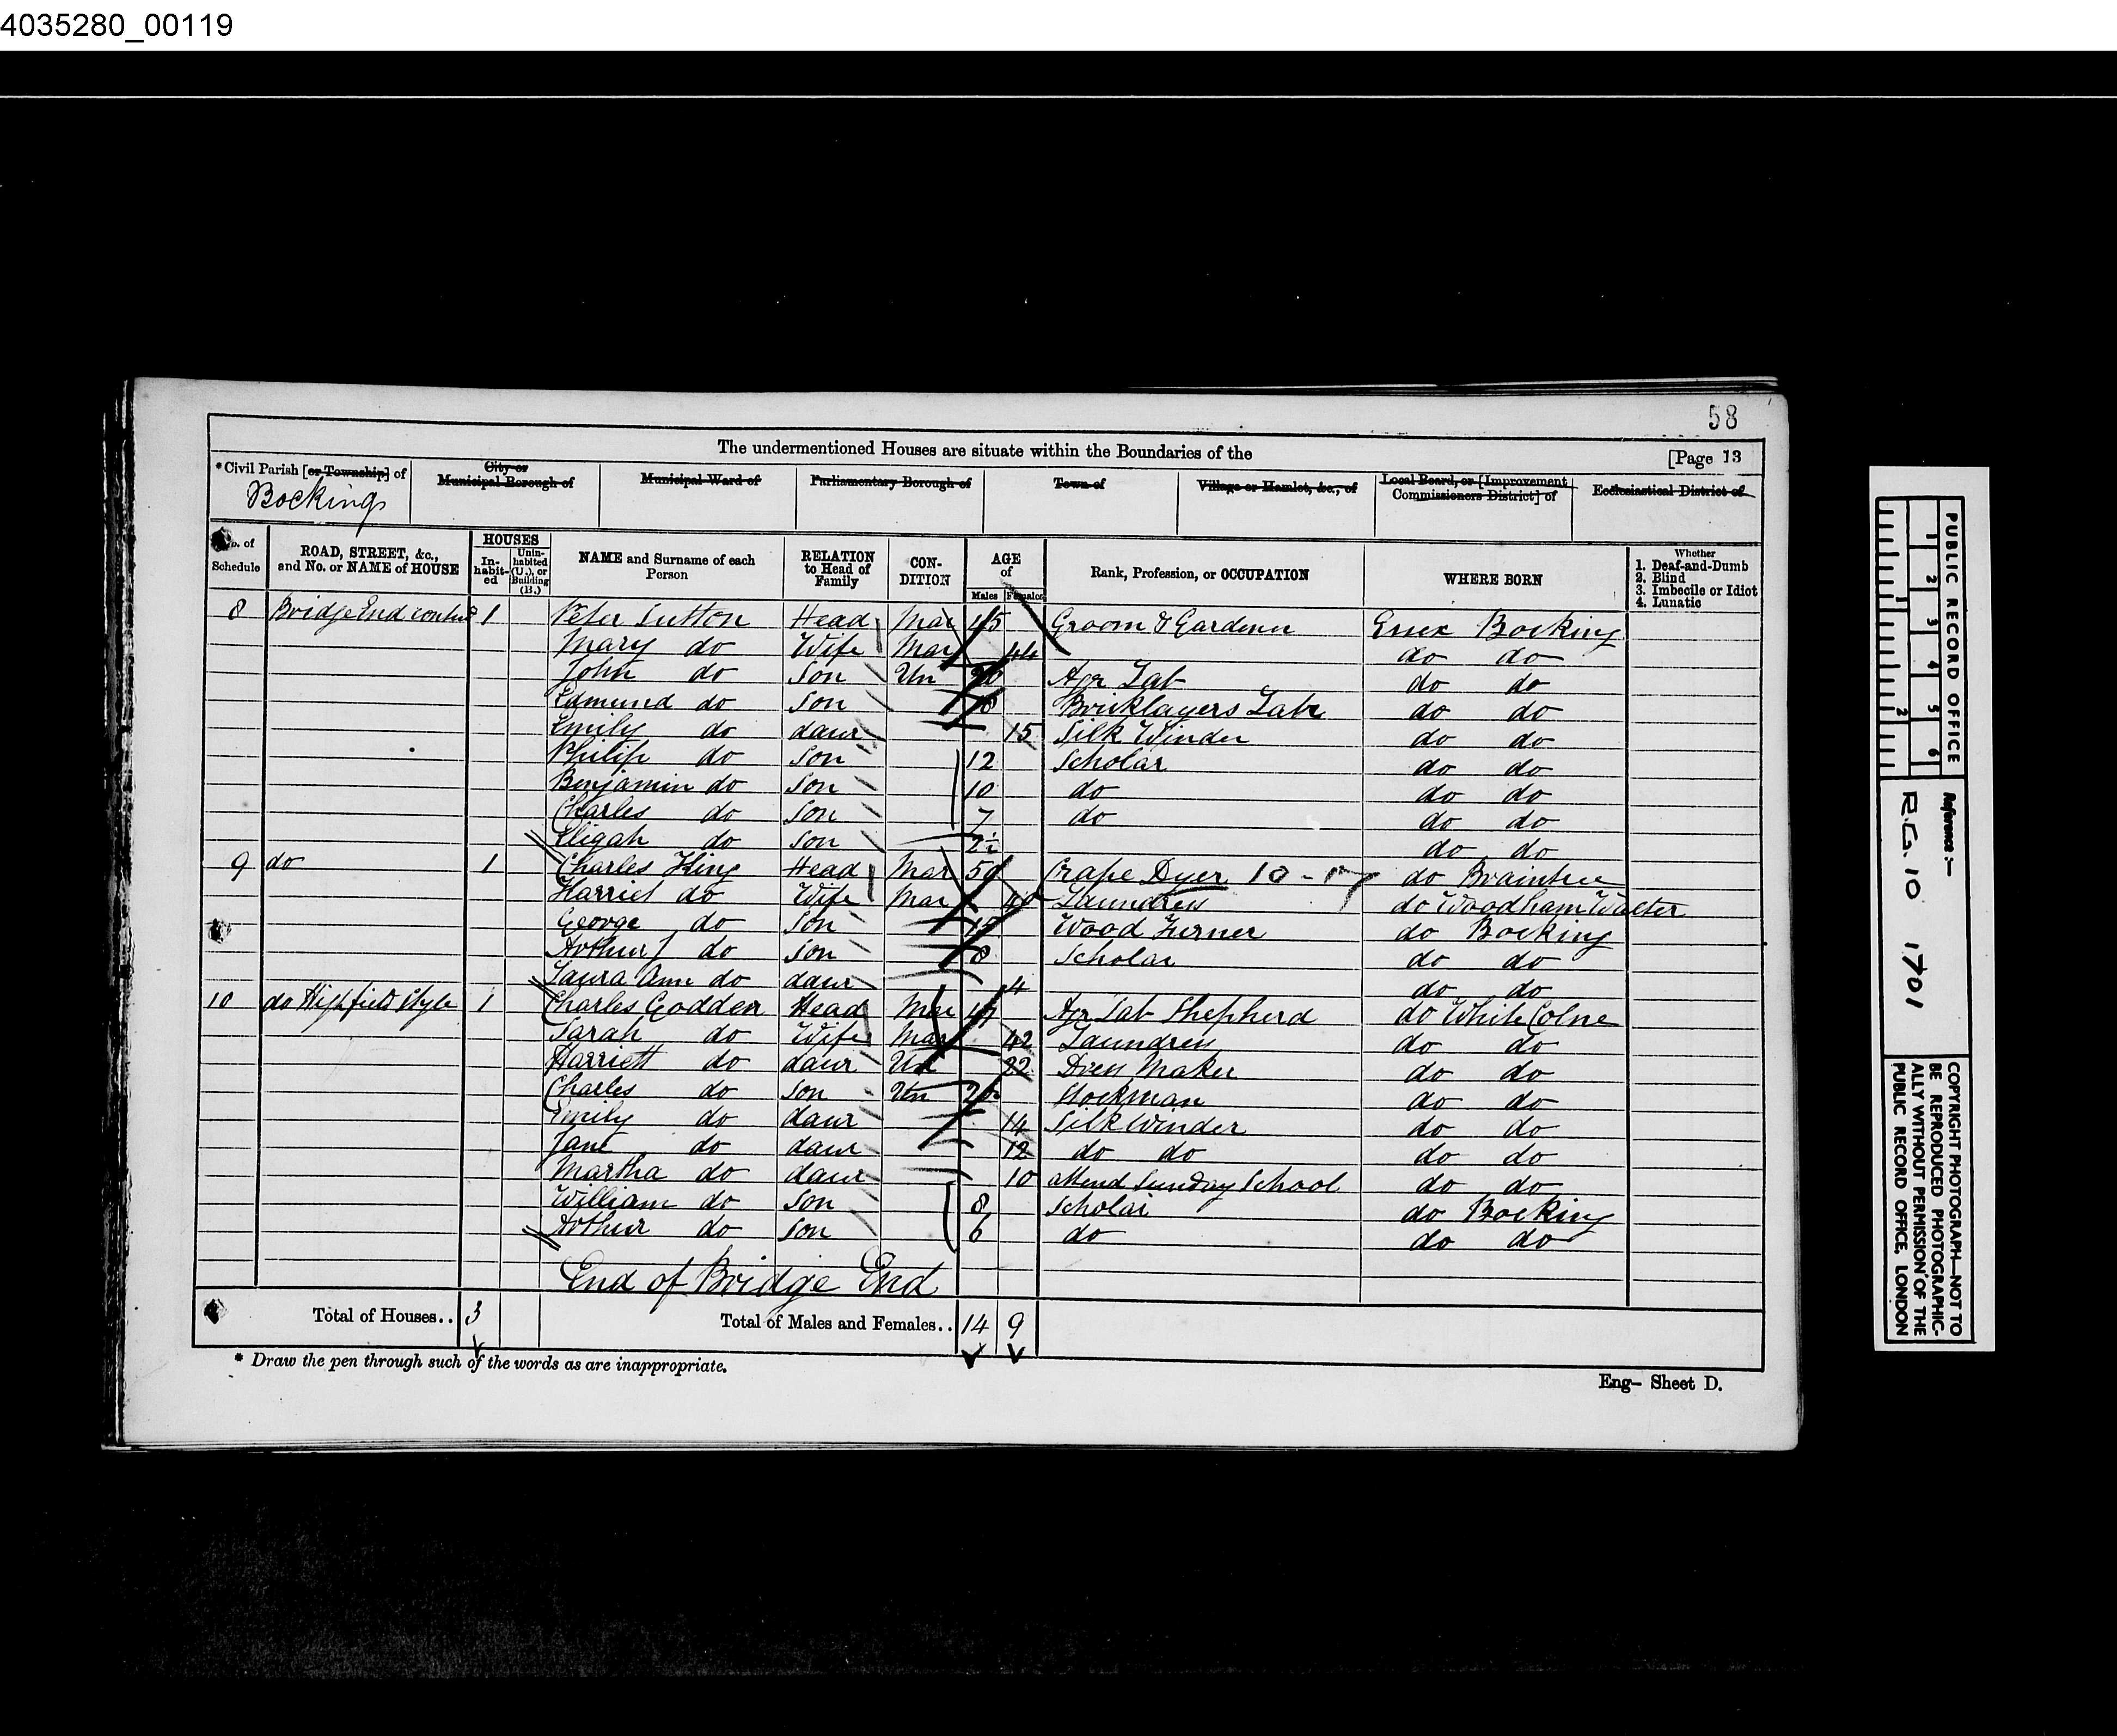 4035280_00119
58
The undermentioned Houses are situate within the Boundaries of the
[Page 13
*Civil Parish [or Township] of
City or Municipal Borough of
Municipal Ward of
Parliamentary Borough of
Town of
Village or Hamlet, &c., of
Local Board, or [Improvement Commissioners District] of
Ecclesiastical District of
Bocking
No. of Schedule
ROAD, STREET, &c., and No. or NAME of HOUSE
HOUSES
In-habit-ed
Unin-habited (U.), or Building (B.)
NAME and Surname of each Person
RELATION to Head of Family
CON-DITION
AGE of
Males
Females
Rank, Profession, or OCCUPATION
WHERE BORN
Whether
1. Deaf-and-Dumb
2. Blind
3. Imbecile or Idiot
4. Lunatic
8 Bridge End 1 Peter Sutton Head Mar 45 Groom & Gardener Essex Bocking
Mary do Wife Mar 44 do do
John do Son Un Agr Lab do do
Edmund do Son 18 Bricklayers Labr do do
Emily do daur 15 Silk Winder do do
Philip do Son 12 Scholar do do
Benjamin do Son 10 do do do
Charles do Son 7 do do do
Eligah do Son 2 do do
9 do 1 Charles King Head Mar 50 Crape Dyer do Braintree
Harriet do Wife Mar 40 Laundress do Woodham Walter
George do Son Wood Turner do Bocking
Arthur J do Son 8 Scholar do do
Laura Ann do daur 4 do do
10 do Highfield Style 1 Charles Godden Head Mar Agr Lab Shepherd do White Colne
Sarah do Wife Mar 42 Laundress do do
Harriett do daur Un 22 Dress Maker do do
Charles do Son Un 20 Stockman do do
Emily do daur 14 Silk Winder do do
Jane do daur 12 do do do do
Martha do daur 10 attend Sunday School do do
William do Son 8 Scholar do Bocking
Arthur do Son 6 do do do
End of Bridge End
Total of Houses.. 3
Total of Males and Females.. 14 9
* Draw the pen through such of the words as are inappropriate.
Eng- Sheet D.
PUBLIC RECORD OFFICE
1 2 3 4 5 6
1 2
Reference :-
R.G. 10 1701
COPYRIGHT PHOTOGRAPH—NOT TO
BE REPRODUCED PHOTOGRAPHIC-
ALLY WITHOUT PERMISSION OF THE
PUBLIC RECORD OFFICE, LONDON